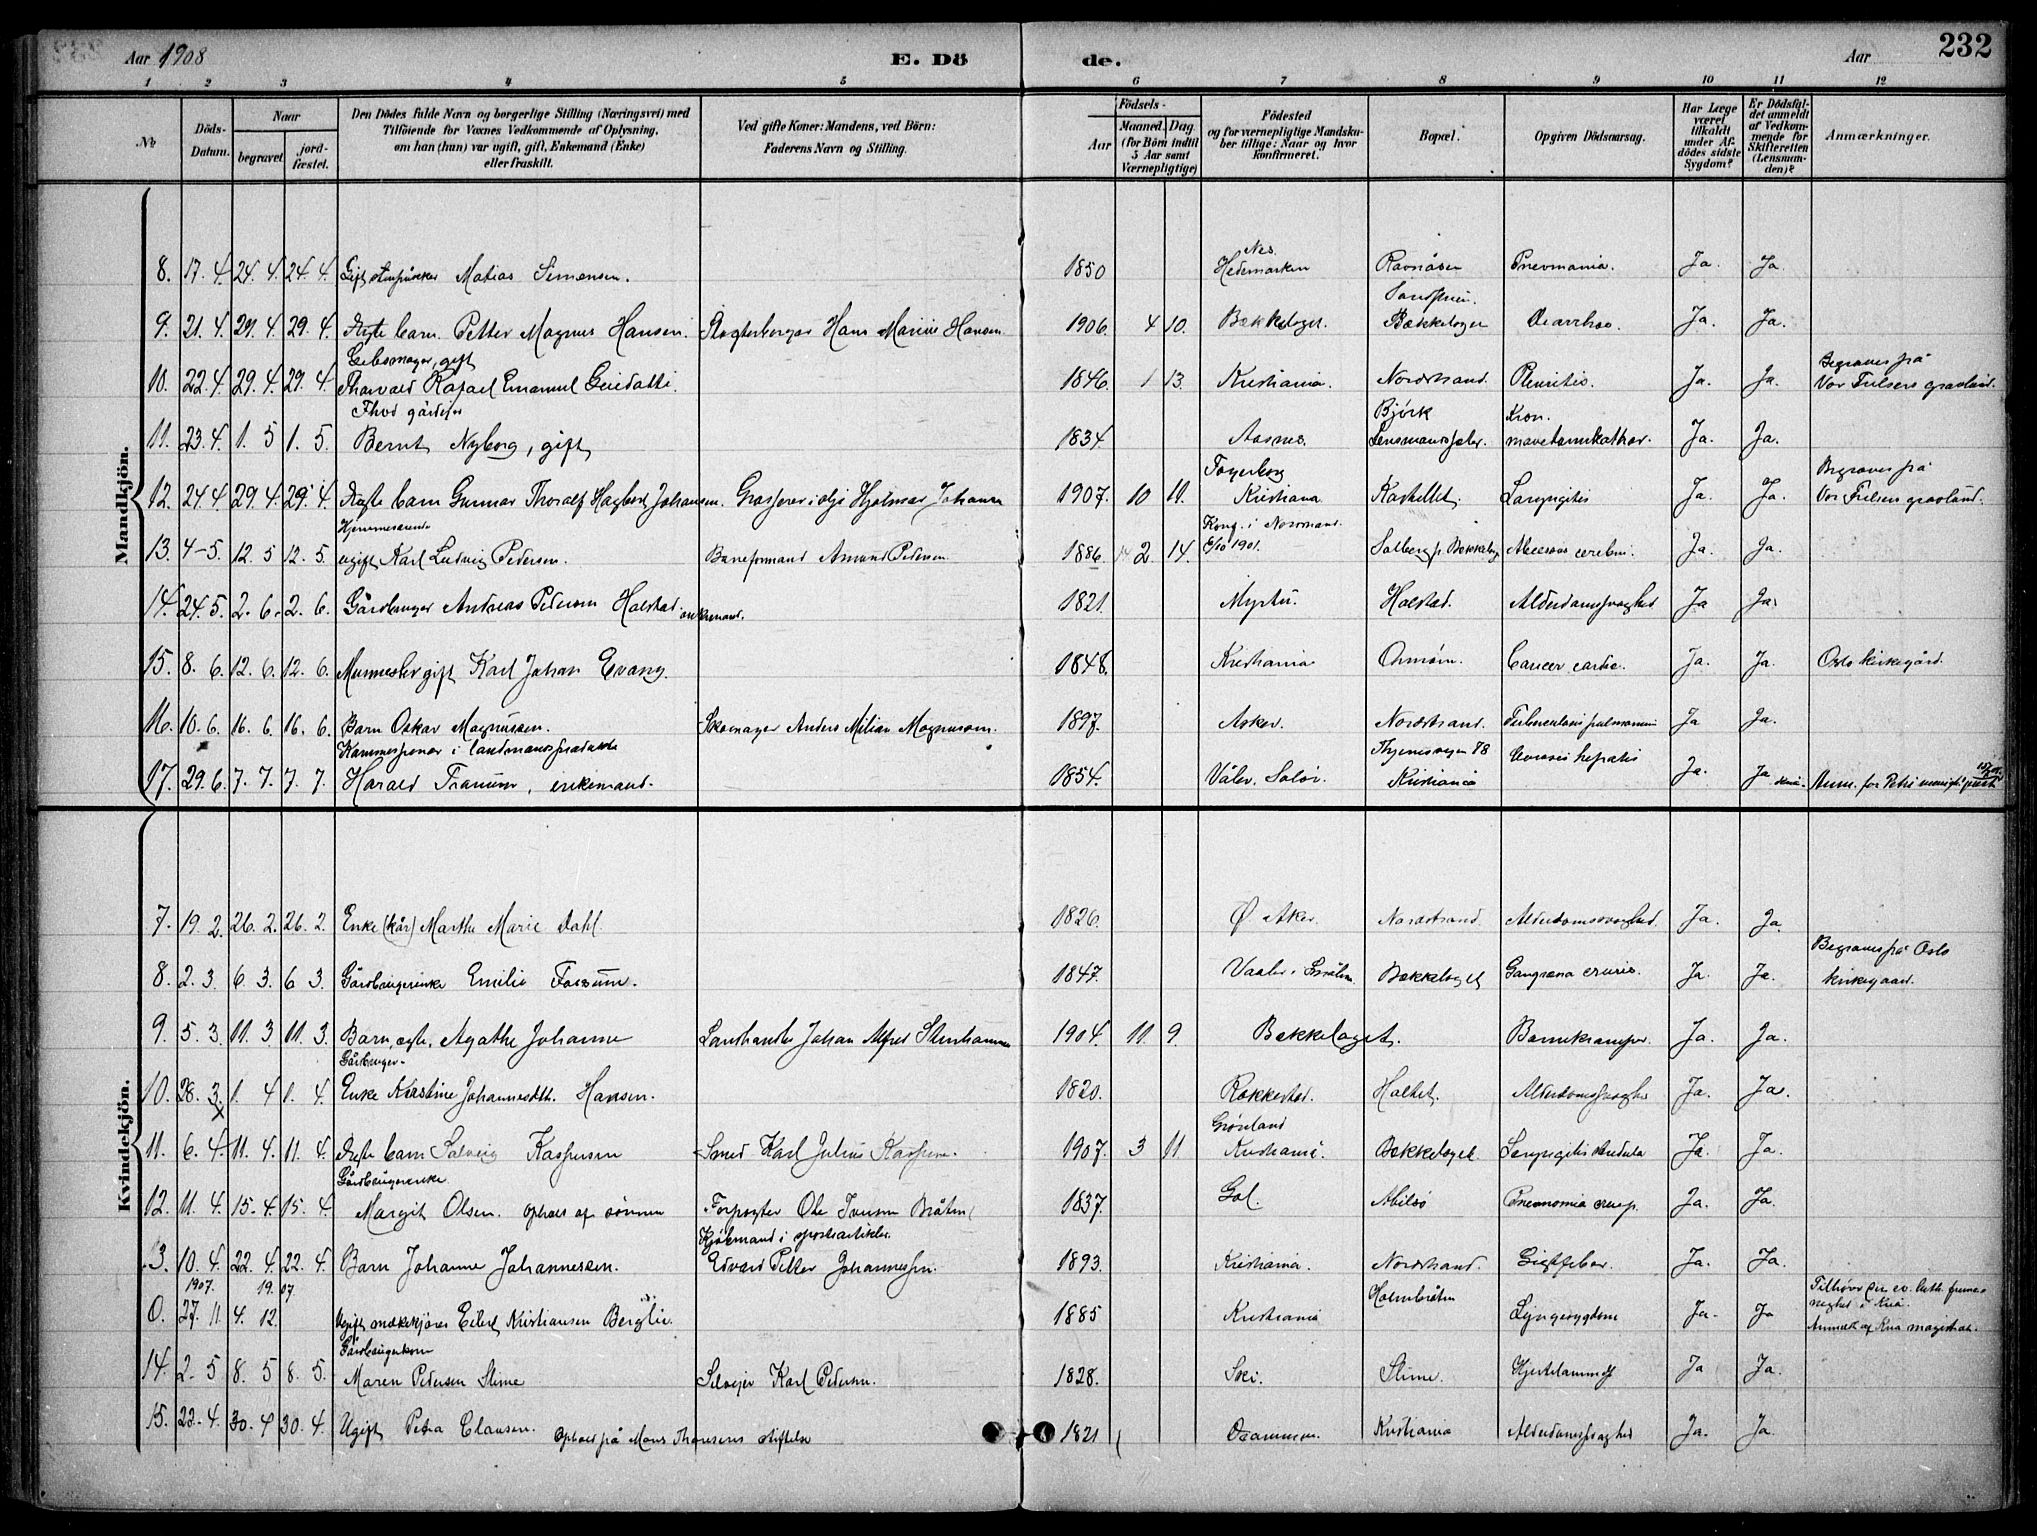 Aar 1908
E. Dö
de.
Aar
232
1 2 3 4 5 6 7 8 9 10 11 12
No
Döds-Datum.
Naar
begravet
jord-fæstet.
Den Dödes fulde Navn og borgerlige Stilling (Næringsvei) med
Tilföiende for Voxnes Vedkommende af Oplysning,
om han (hun) var ugift, gift, Enkemand (Enke)
eller fraskilt.
Ved gifte Koner: Mandens, ved Börn:
Faderens Navn og Stilling.
Födsels-
Aar
Maaned. Dag.
(for Börn indtil
5 Aar samt
Værnepligtige)
Födested
og for værnepligtige Mandsku-
ber tillige: Naar og hvor
konfirmeret.
Bopæl.
Opgiven Dödsaarsag.
Har Læge
været
tilkaldt
under Af-
dödes sidste
Sygdom?
Er Dödsfal-
det anmeldt
af Vedkom-
mende for
Skifteretten
(Lensman-
den)?
Anmærkninger.
Mandkjön.
Nes
8. 17. 4. 24. 4. 24. 4. Gift Matias Simensen. 1850 Hedemarken Ravnåsen Pnevmonia. Ja. Ja
9. 21. 4. 29. 4. 29. 4. Ægte barn Petter Magnus Hansen. Hans Marius Hansen 1906 4 10. Bækkelaget. Bækkelaget Diarrhoe Ja. Ja.
gift
Begraves på
10. 22. 4. 29. 4. 29. 4. Thorvald Rafael Emanuel Guidotti. 1846. 1 13. Kristiania. Nordstrand. Pleuritis. Ja. Ja. Vor Frelsers gravlund.
Bjørk Kron.
11. 23. 4. 1. 5 1. 5. Bernt Nyborg, gift 1834 Aasnes. Lensmand mavetarmkathar. Ja. Ja.
Fagerborg
Begraves på
12. 24. 4. 29. 4. 29. 4 Ægte barn Gunnar Thoralf Hagbert Johansen. Hjalmar Johansen 1907. 10 11. Kristiania Kastellet. Laryngitis Ja. Ja. Vor Frelsers gravlund.
Hjemmeværende
Konf. i Nordstrand
13. 4-5. 12. 5 12. 5. ugift Karl Ludvig Pedersen. Baneformand Amund Pedersen 1886. 2. 14. 6/10 1901. Solberg p. Bækkelag Abcessus cerebri. Ja. Ja.
14. 24. 5. 2. 6. 2. 6. Gårdbruger Andreas Pedersen Holstad. enkemand. 1821. Holstad. Alderdomssvaghed Ja Ja
15. 8. 6. 12. 6. 12. 6. Murmester gift Karl Johan Evang. 1848. Kristiania Ormøen. Cancer cardia. Ja. Ja. Oslo kirkegård.
16. 10. 6. 16. 6. 16. 6. Barn Oskar Magnussen. Skomager Anders Milian Magnussen. 1897. Asker. Nordstrand. Tuberculosis pulmonum Ja Ja.
78 Cirrosis hepatis
17. 29. 6. 7. 7. 7. 7. Harald Franum, enkemand. 1854. Våler. Solør. Kristiania Ja. Ja Anm. for Petri
Kvindekjön.
7. 19. 2. 26. 2. 26. 2. Enke (kår) Marthe Marie Dahl. 1826. Ø. Aker. Nordstrand Alderdomssvaghed. Ja. Ja.
Begraves på Oslo
8. 2. 3. 6 3. 6 3. Gårdbrugerenke Emilie Fossum. 1847. Vaaler i Smålen. Bækkelaget Gangræna cruris. Ja. Ja. kirkegaard.
9. 5. 3. 11. 3 11. 3. Barn, ægte, Agathe Johanne Landhandler Johan Alfred Stenhammer 1904. 11. 9. Bækkelaget. Barnekramper. Ja. Ja.
Gårdbruger-
10. 28. 3. 1. 4 1. 4. Enke Kirstine Johannesdtr. Hansen. 1820. Rakkestad. Holtet. Alderdomssvaghed Ja. Ja.
Grønland
11. 6. 4. 11. 4. 11. 4. Ægte barn Solveig Kaspersen Smed Karl Julius Kaspersen. 1907. 3 11. Kristiania. Bækkelaget. Laryngitis stridula Ja. Ja.
Gårdbrugerenke.
12. 11. 4. 15. 4. 15. 4. Margit Olsen. ophold af sønnen Forpagter Ole Iversen Bråten 1837. Gol. Abilsø Pneumonia crup. Ja. Ja.
Kjøbmand i sportsartikler.
13. 10. 4. 22. 4. 22. 4. Barn Johanne Johannessen. Edvard Petter Johannessen. 1893. Kristiania. Nordstrand. Gigtfeber. Ja. Ja.
1907. 19. 07
Tilhører
0. 27. 11. 4. 12. Ugift Kristiansen Berglie. 1885 Kristiania Holmbråten Lungesygdom Ja. Ja Anmeldt af Kria magistrat.
Gårdbrugerkone
14. 2. 5 8. 5 8. 5. Maren Pedersen Slime Selveier Karl Pedersen. 1828. Ski. Slime. Hjertelammelse Ja Ja.
15. 22. 4. 30. 4 30. 4. Ugift Petra Clausen. Ophold på Mons Thoresens stiftelse 1821 Drammen. Kristiania Alderdomssvaghed Ja. Ja.